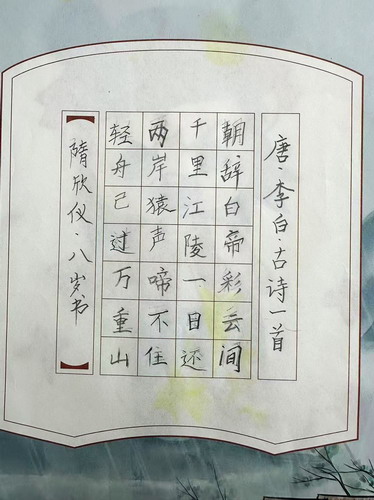 唐·李白·古诗一首
朝辞白帝彩云间
千里江陵一日还
两岸猿声啼不住
轻舟已过万重山
【隋欣仪·八岁书】